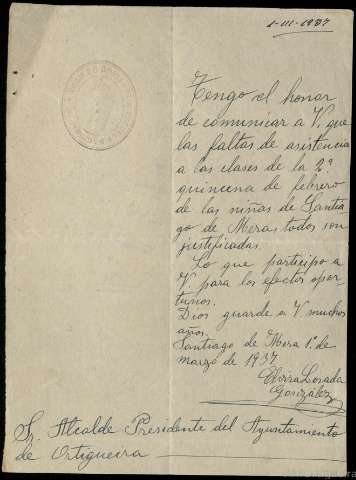 1-III-1937
Tengo el honor
de comunicar a V. que
las faltas de asistencia
a las clases de la 2ª
quincena de febrero
de las niñas de Santia
go de Mera todos son
justificadas.
Lo que participo a
V. para los efectos opor-
tunos.
Dios guarde a V. muchos
años.
Santiago de Mera 1º de
marzo de 1937
Elvira Losada
Gonzalez
Sr. Alcalde Presidente del Ayuntamiento
de Ortigueira